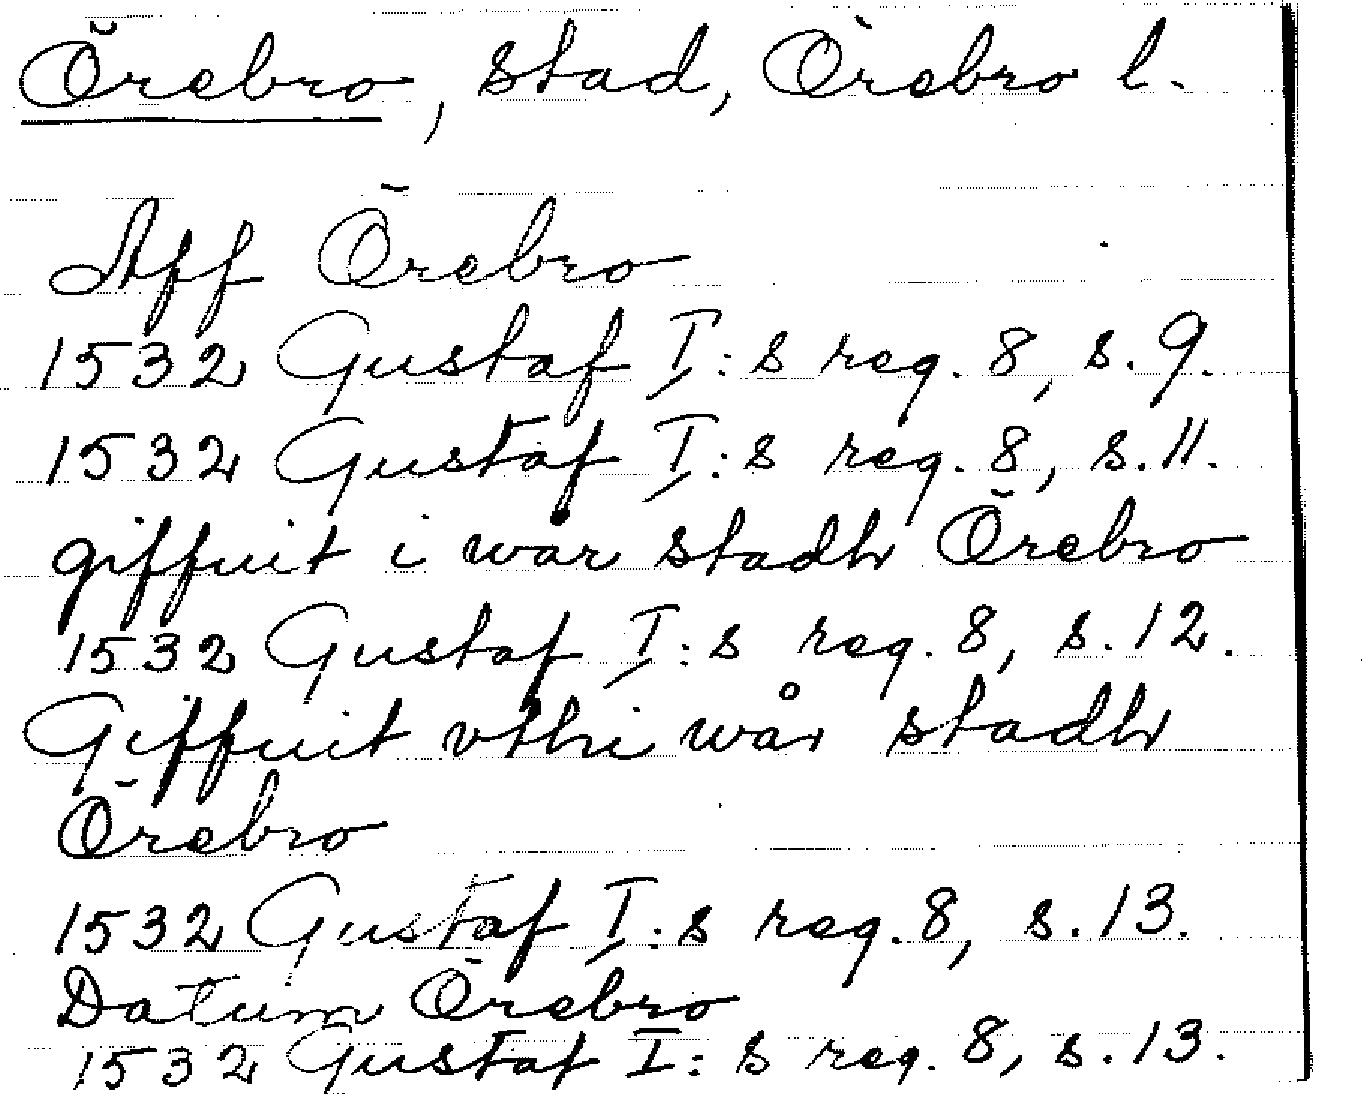 Örebro, stad, Örebro l.
Aff Örebro
1532 Gustaf I:s reg. 8, s. 9.
1532 Gustaf I:s reg. 8, s. 11.
giffuit i wår stadh Örebro
1532 Gustaf I:s reg. 8, s. 12.
Giffuit vthi wår stadh
Örebro
1532 Gustaf I:s reg. 8, s. 13.
Datum Örebro
1532 Gustaf I:s reg. 8, s. 13.